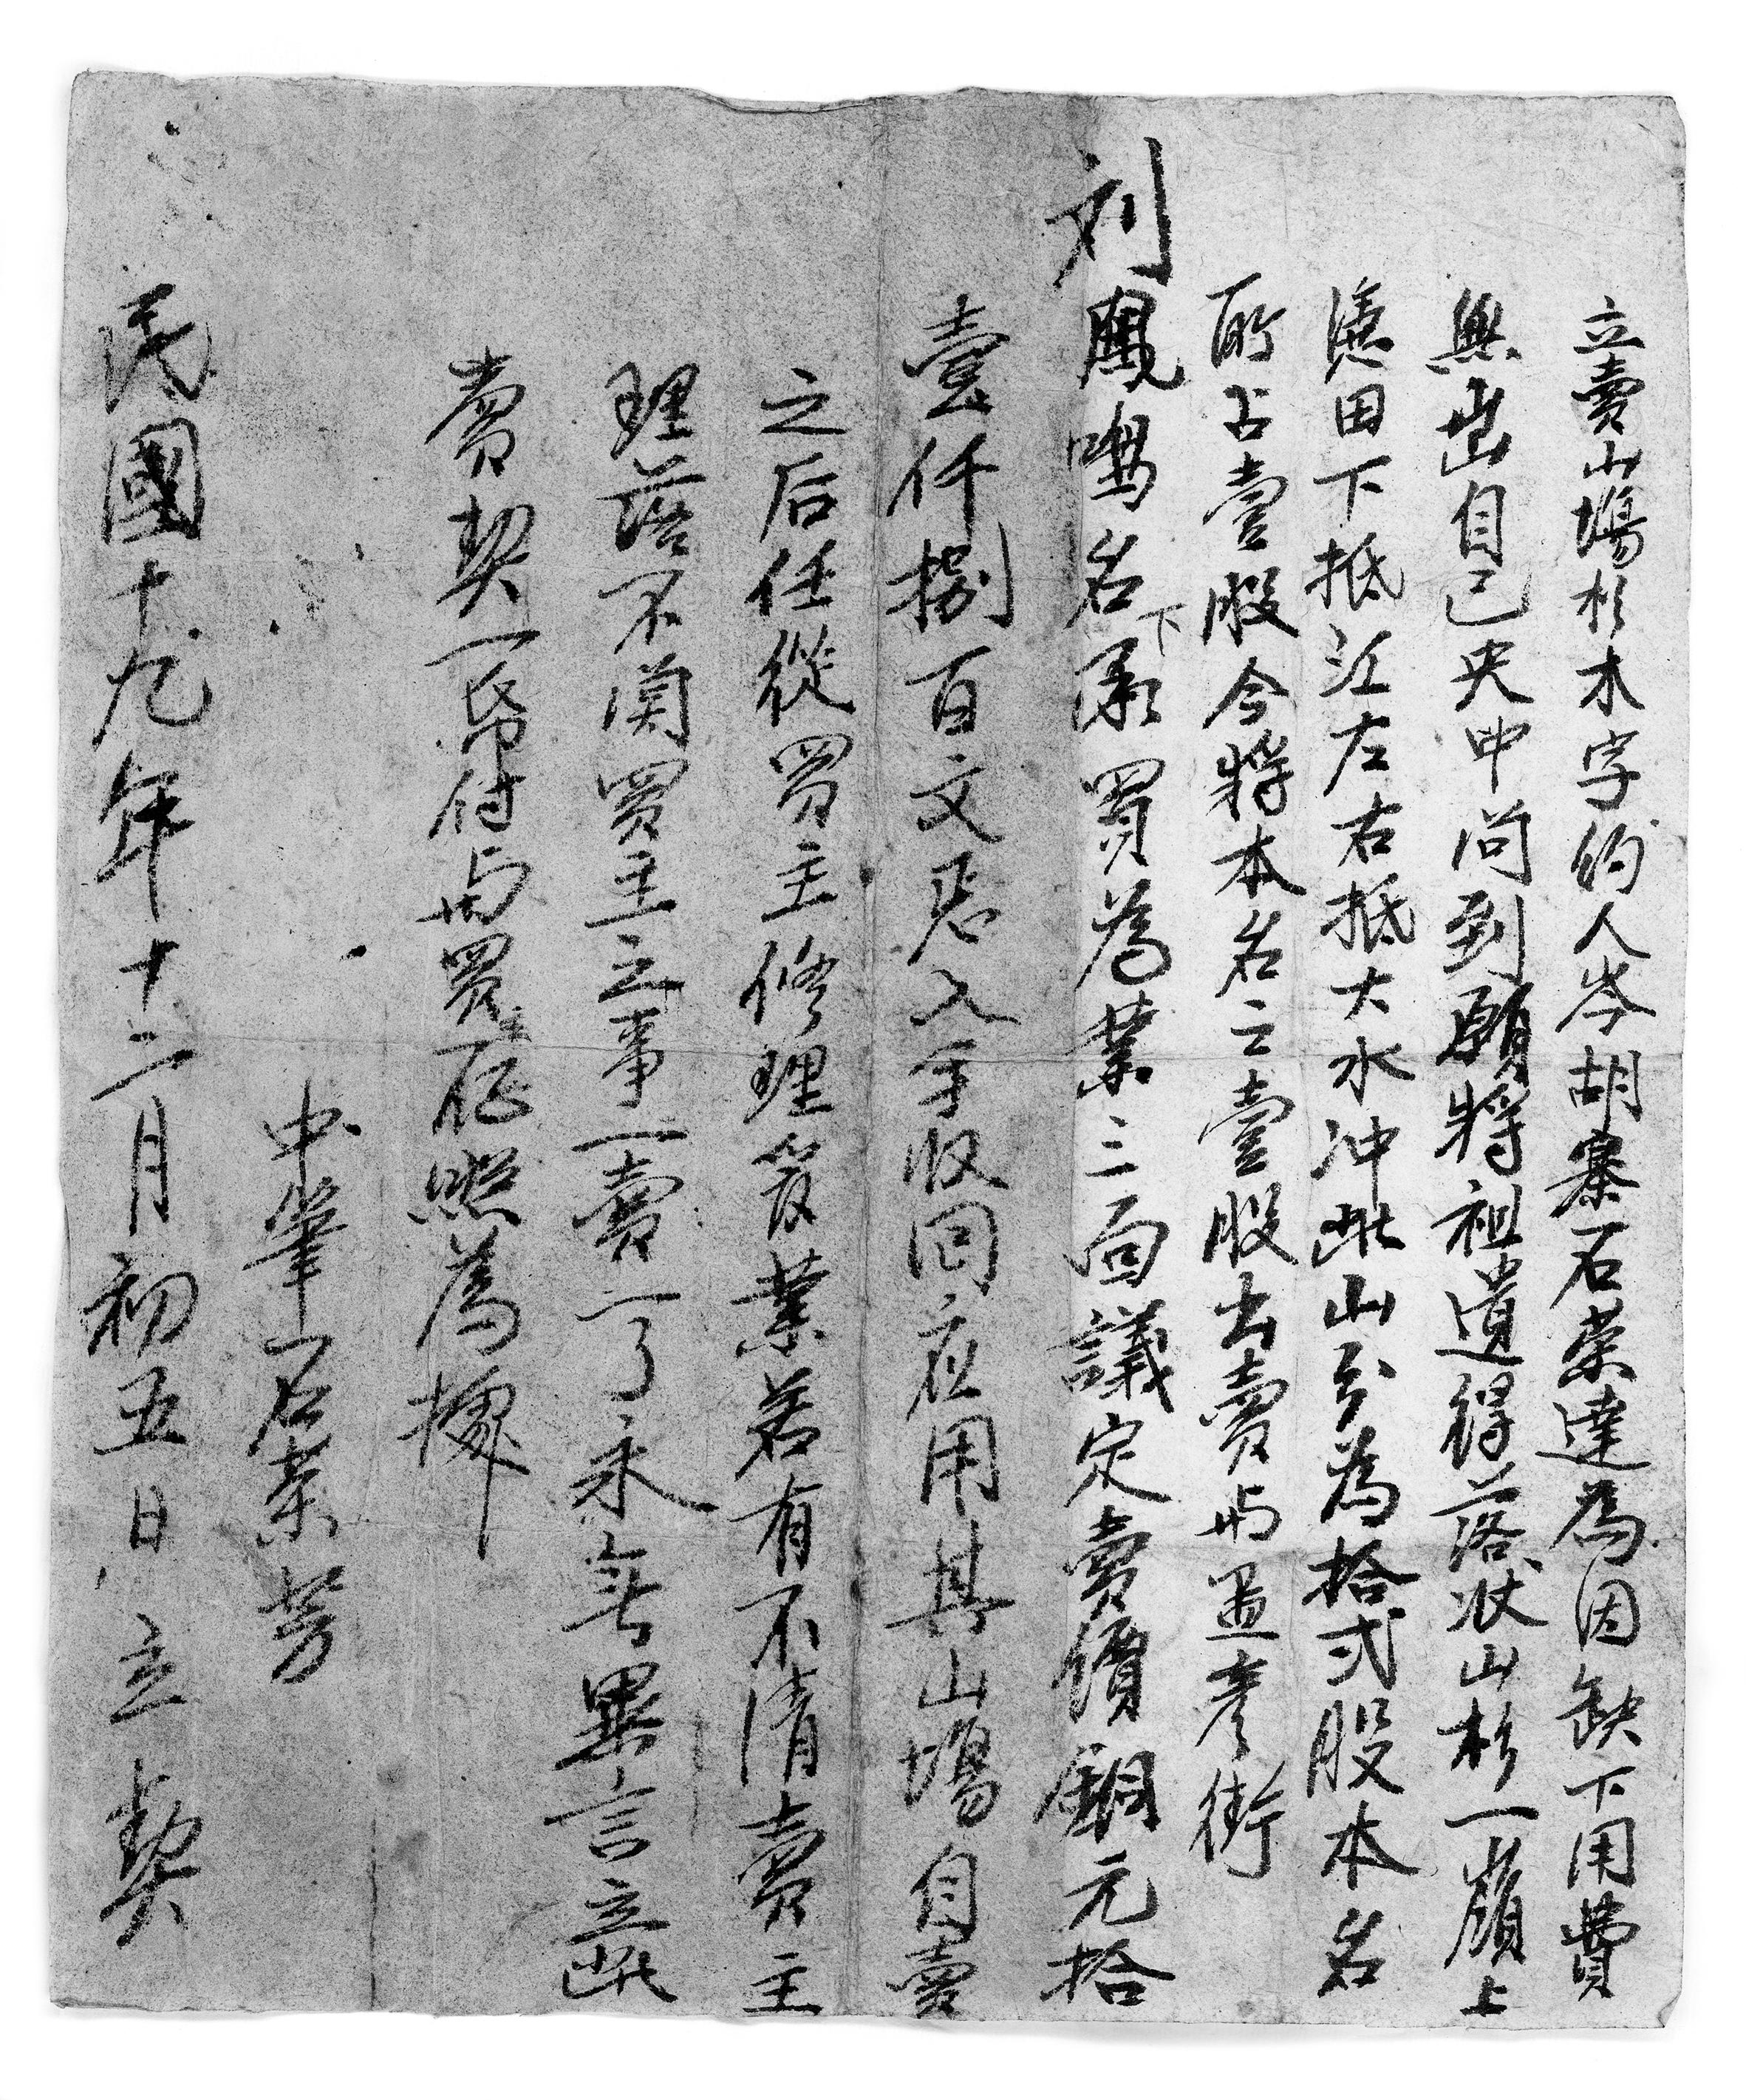 立賣山塲杉木字約人岑胡寨石榮達為因缺下用費
無出自己央中尚到願將祖遺得落状山杉一嶺上
憑田下抵江左右抵大水冲此山分為拾弍股本名
所占壹股今將本名之壹股出賣与孟彦衝
刘鳳鳴名下承買為業三面議定賣價銅元拾
壹仟捌百文悉入手收回应用其山塲自賣
之后任從買主修理管業若有不清賣主
理落不関買主之事一賣一了永無異言立此
賣契一紙付与買主征照為據
中筆石榮芳
民國十九年十二月初五日立契